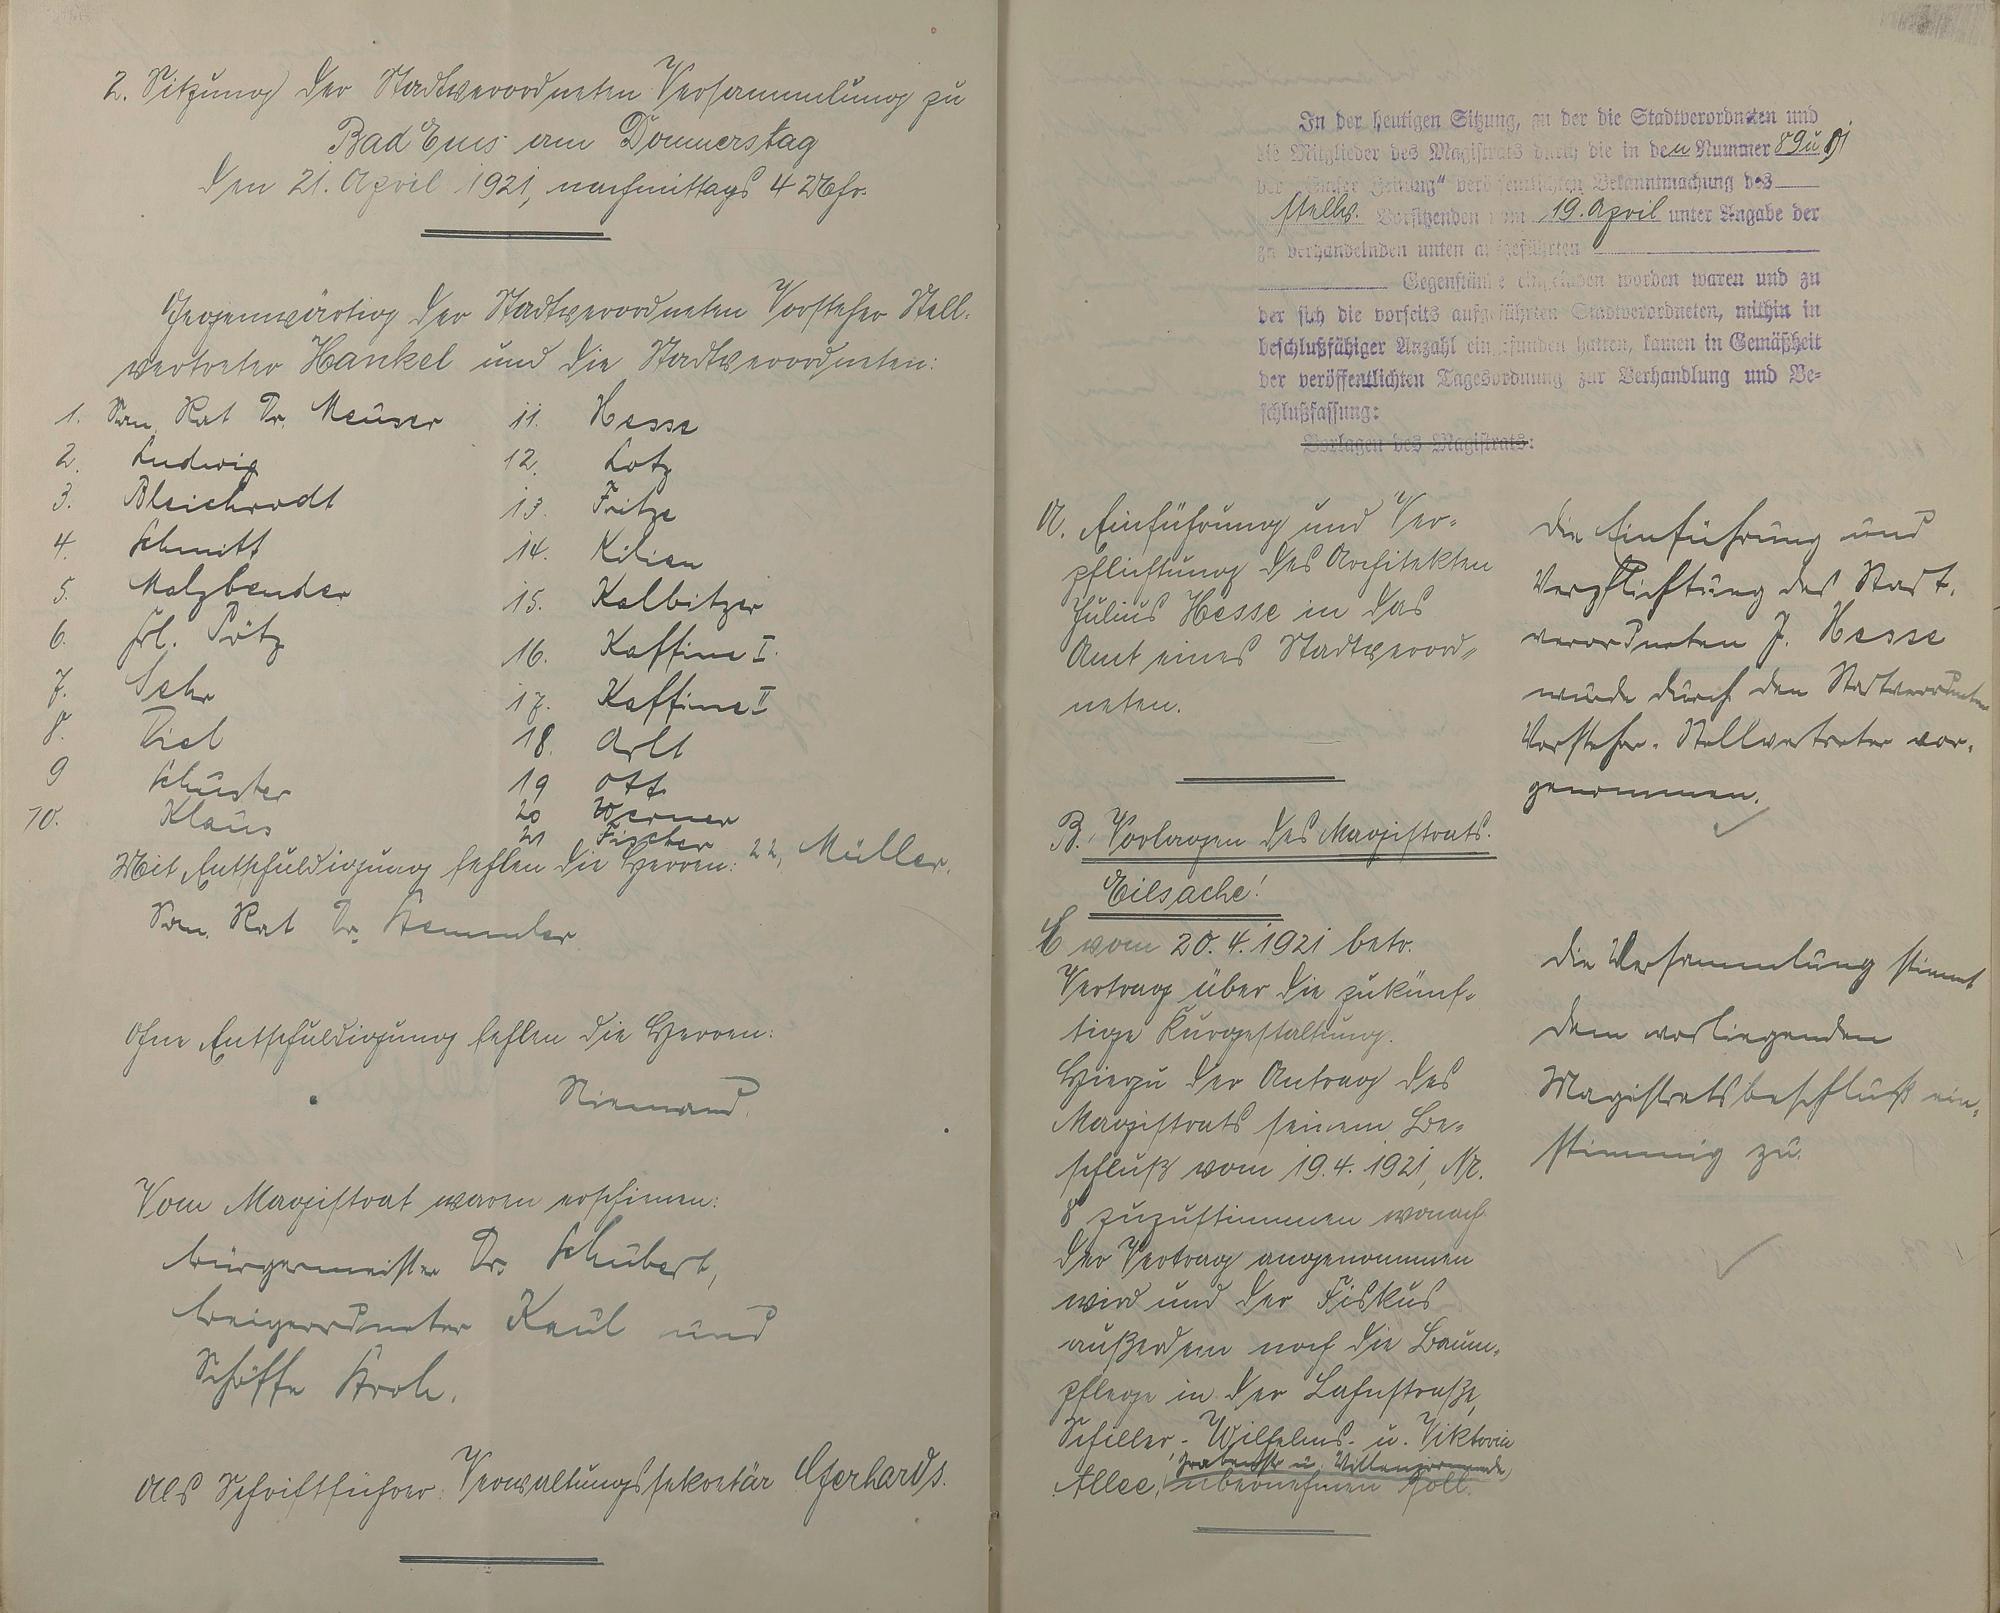 2. Sitzung der Stadtverordneten Versammlung zu
Bad Ems am Donnerstag
den 21. April 1921, nachmittags 4 Uhr.
Gegenwärtig der Stadtverordneten Vorsteher Stell-
vertreter Hankel und die Stadtverordneten:
1. San. Rat Dr. Meuser
2. Ludwig
3. Bleichrodt
4. Schmitt
5. Malzbender
6. Frl. Pötz
7. Sehr
8. Diel
9 Schuster
10. Klaus
11. Hesse
12. Lotz
13. Fritze
14. Kilian
15. Kalbitzer
16. Kaffine I.
17. Kaffine II
18. Arlt
19 Ott
20 Werner
21 Fischer
22, Müller.
Mit Entschuldigung fehlen die Herren:
San. Rat Dr. Stemmler
Ohne Entschuldigung fehlen die Herren:
Niemand.
Vom Magistrat waren erschienen:
Bürgermeister Dr. Schubert,
Beigeordneter Kaul und
Schöffe Stroh.
Als Schriftführer: Verwaltungssekretär Gerhards.
In der heutigen Sitzung, zu der die Stadtverordneten und
die Mitglieder des Magistrats durch die in den Nummer 89 u 91
der "Emser Zeitung" veröffentlichten Bekanntmachung des
stellv. Vorsitzenden vom 19. April unter Angabe der
zu verhandelnden unten aufgeführten
Gegenstände eingeladen worden waren und zu
der sich die vorseits aufgeführten Stadtverordneten, mithin in
beschlußfähiger Anzahl eingefunden hatten, kamen in Gemäßheit
der veröffentlichten Tagesordnung zur Verhandlung und Be-
schlußfassung:
Vorlagen des Magistrats:
A. Einführung und Ver-
pflichtung des Architekten
Julius Hesse in das
Amt eines Stadtverord-
neten.
Die Einführung und
Verpflichtung des Stadt-
verordneten J. Hesse
wurde durch den Stadtverordneten
Vorsteher-Stellvertreter vor-
genommen.
B. Vorlagen des Magistrats.
Eilsache!
E vom 20.4.1921 betr.
Vertrag über die zukünf-
tige Kurgestaltung.
Hierzu der Antrag des
Magistrats seinem Be-
schluß vom 19.4.1921, Nr.
8 zuzustimmen wonach
der Vertrag angenommen
wird und der Fiskus
außerdem noch die Baum-
pflege in der Lahnstraße,
Schiller- Wilhelms- u. Viktoria
Grabenstr u. Villenpromenade
Allee, übernehmen soll.
Die Versammlung stimmt
dem vorliegenden
Magistratsbeschluß ein-
stimmig zu.